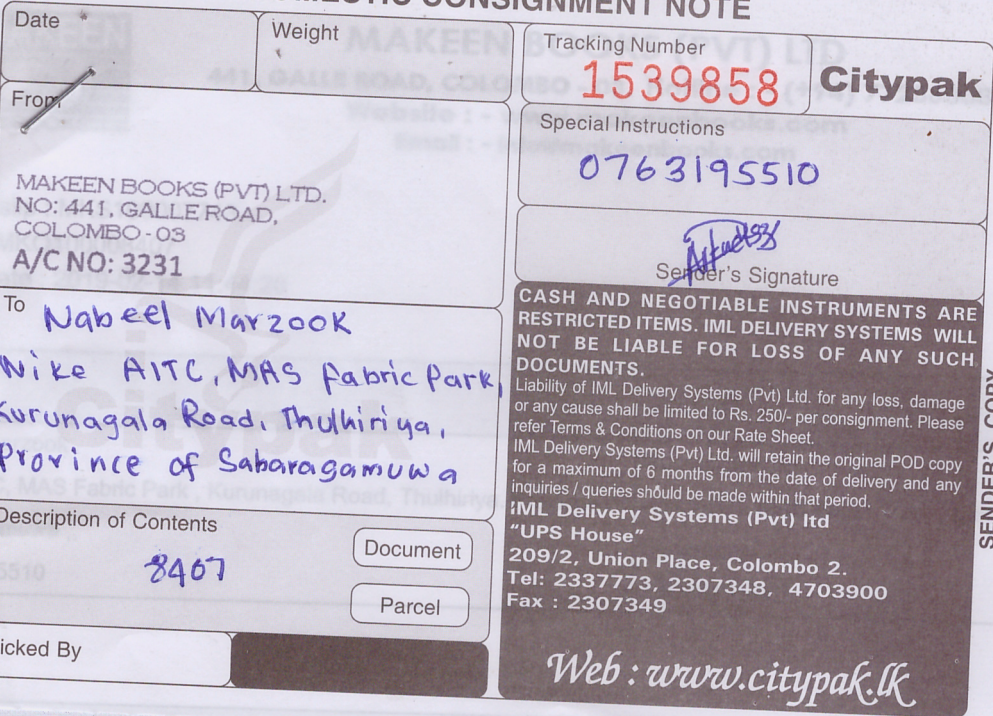 CONSIGNMENT NOTE
Date
Weight
Tracking Number
1539858
Citypak
From
MAKEEN BOOKS (PVT) LTD.
NO: 441, GALLE ROAD,
COLOMBO - 03
A/C NO: 3231
Special Instructions
0763195510
Sender's Signature
To Nabeel Marzook
Nike AITC, MAS Fabric Park,
Kurunagala Road, Thulhiriya,
Province of Sabaragamuwa
Description of Contents
8407
Document
Parcel
icked By
CASH AND NEGOTIABLE INSTRUMENTS ARE
RESTRICTED ITEMS. IML DELIVERY SYSTEMS WILL
NOT BE LIABLE FOR LOSS OF ANY SUCH
DOCUMENTS.
Liability of IML Delivery Systems (Pvt) Ltd. for any loss, damage
or any cause shall be limited to Rs. 250/- per consignment. Please
refer Terms & Conditions on our Rate Sheet.
IML Delivery Systems (Pvt) Ltd. will retain the original POD copy
for a maximum of 6 months from the date of delivery and any
inquiries / queries should be made within that period.
IML Delivery Systems (Pvt) ltd
"UPS House"
209/2, Union Place, Colombo 2.
Tel: 2337773, 2307348, 4703900
Fax : 2307349
Web : www.citypak.lk
SENDER'S COPY